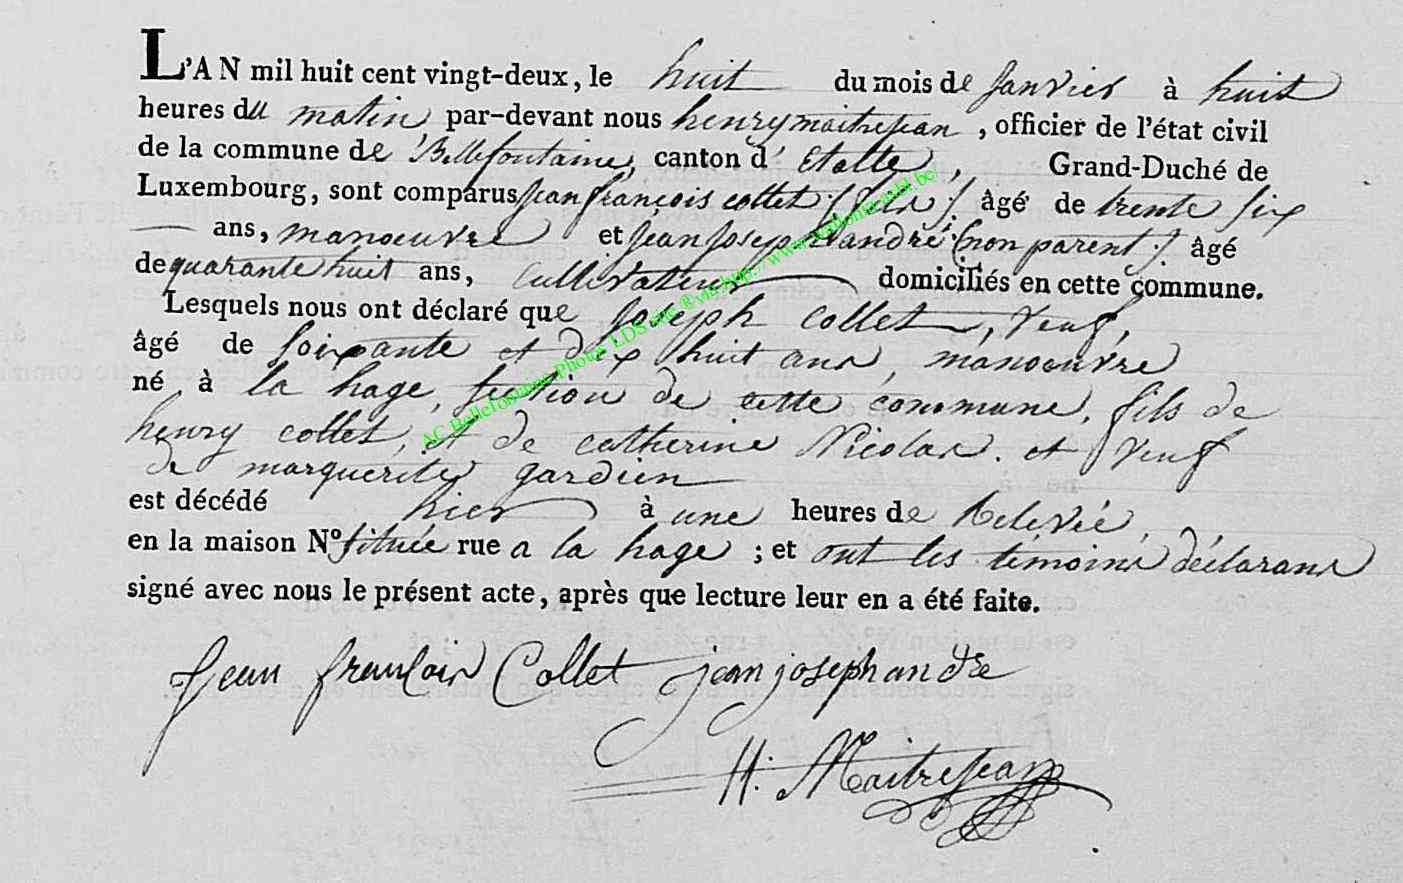 L'AN mil huit cent vingt-deux, le huit du mois de janvier à huit
heures du matin par-devant nous henry maitrejean, officier de l'état civil
de la commune de Bellefontaine, canton d'Etalle, Grand-Duché de
Luxembourg, sont comparus jean françois collet (fils) âgé de trente six
ans, manoeuvre et jean joseph andré (non parent) âgé
de quarante huit ans, cultivateur domiciliés en cette commune.
Lesquels nous ont déclaré que joseph collet, veuf,
âgé de soixante et dix huit ans, manoeuvre
né à la hage, section de cette commune, fils de
henry collet, et de catherine Nicolas. et veuf
de marguerite gardien
est décédé hier à une heures de relevée,
en la maison N° située rue a la hage ; et ont les témoins déclarans
signé avec nous le présent acte, après que lecture leur en a été faite.
Jean francois Collet jean joseph andre
H. Maitrejean
AC Bellefontaine Photos LDS